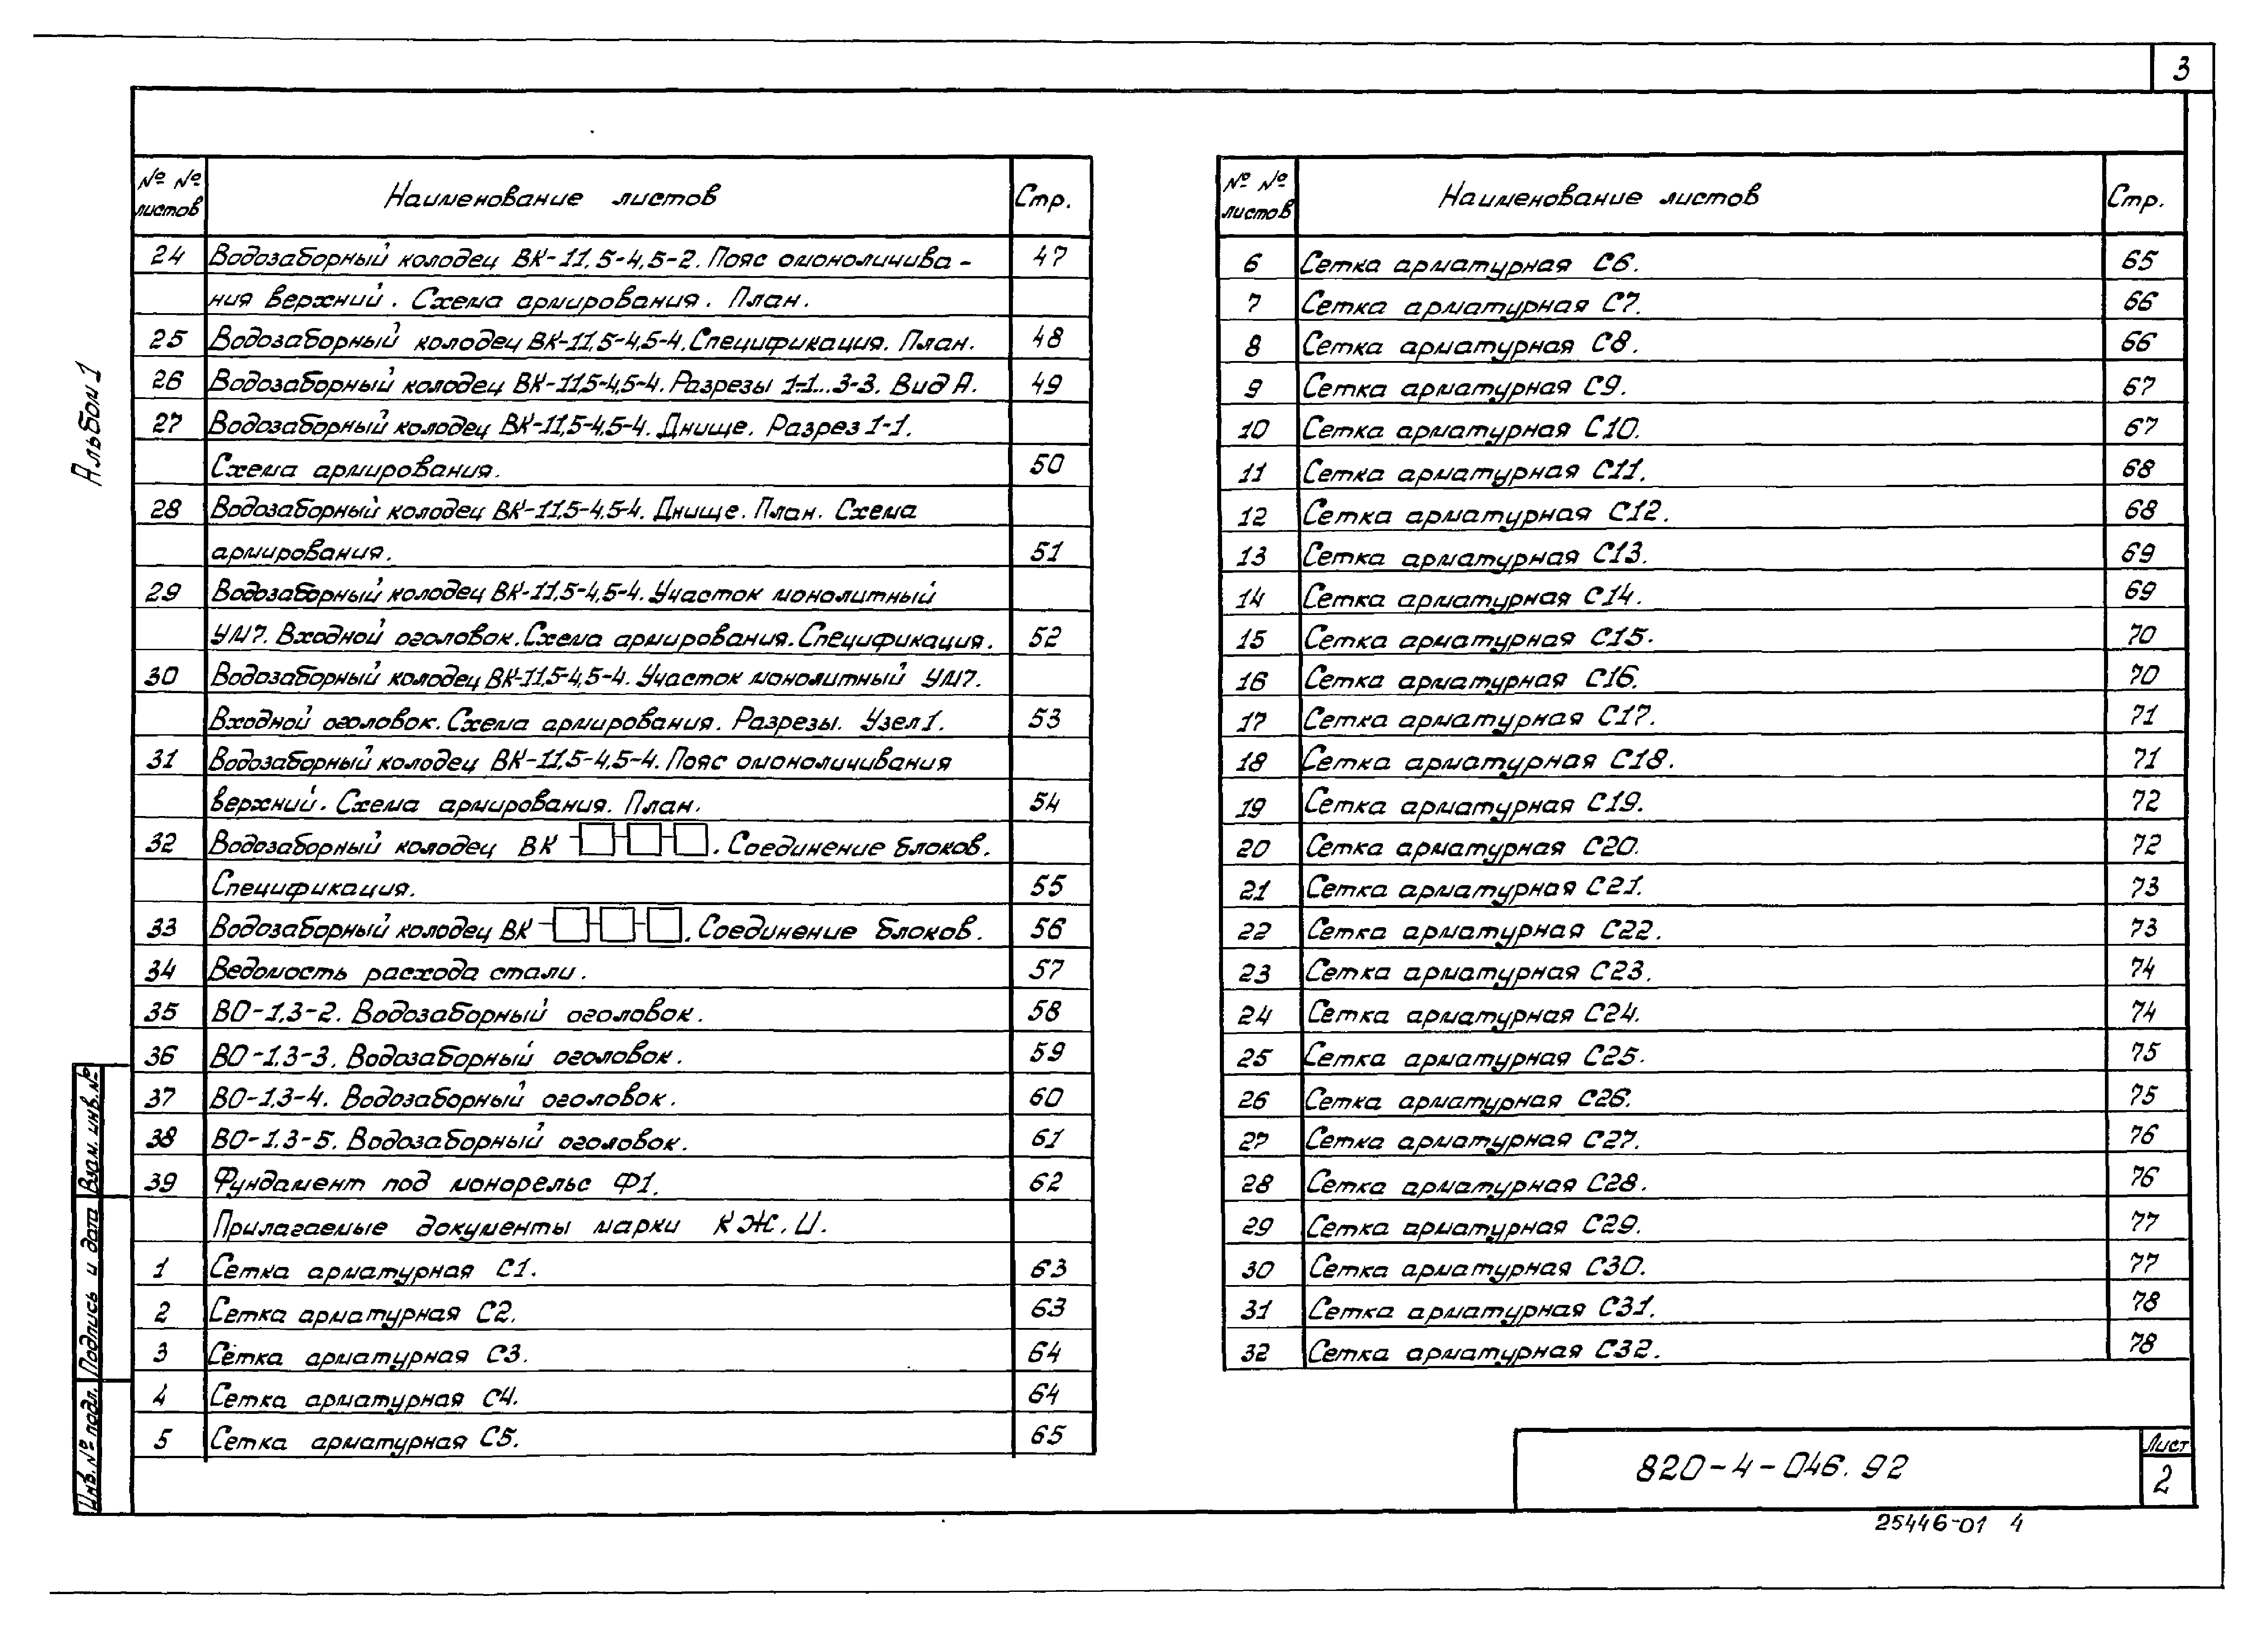 3
Альбом 1
№ №
листов
Наименование листов
Стр.
24 Водозаборный колодец ВК-11,5-4,5-2. Пояс омоноличива- 47
ния верхний. Схема армирования. План.
25 Водозаборный колодец ВК-11,5-4,5-4. Спецификация. План. 48
26 Водозаборный колодец ВК-11,5-4,5-4. Разрезы 1-1...3-3. Вид А. 49
27 Водозаборный колодец ВК-11,5-4,5-4. Днище. Разрез 1-1.
Схема армирования. 50
28 Водозаборный колодец ВК-11,5-4,5-4. Днище. План. Схема
армирования. 51
29 Водозаборный колодец ВК-11,5-4,5-4. Участок монолитный
УМ7. Входной оголовок. Схема армирования. Спецификация. 52
30 Водозаборный колодец ВК-11,5-4,5-4. Участок монолитный УМ7.
Входной оголовок. Схема армирования. Разрезы. Узел 1. 53
31 Водозаборный колодец ВК-11,5-4,5-4. Пояс омоноличивания
верхний. Схема армирования. План. 54
32 Водозаборный колодец ВК-□-□-□. Соединение блоков.
Спецификация. 55
33 Водозаборный колодец ВК-□-□-□. Соединение блоков. 56
34 Ведомость расхода стали. 57
35 ВО-1,3-2. Водозаборный оголовок. 58
36 ВО-1,3-3. Водозаборный оголовок. 59
37 ВО-1,3-4. Водозаборный оголовок. 60
38 ВО-1,3-5. Водозаборный оголовок. 61
39 Фундамент под монорельс Ф1. 62
Прилагаемые документы марки КЖ.И.
1 Сетка арматурная С1. 63
2 Сетка арматурная С2. 63
3 Сетка арматурная С3. 64
4 Сетка арматурная С4. 64
5 Сетка арматурная С5. 65
№ №
листов
Наименование листов
Стр.
6 Сетка арматурная С6. 65
7 Сетка арматурная С7. 66
8 Сетка арматурная С8. 66
9 Сетка арматурная С9. 67
10 Сетка арматурная С10. 67
11 Сетка арматурная С11. 68
12 Сетка арматурная С12. 68
13 Сетка арматурная С13. 69
14 Сетка арматурная С14. 69
15 Сетка арматурная С15. 70
16 Сетка арматурная С16. 70
17 Сетка арматурная С17. 71
18 Сетка арматурная С18. 71
19 Сетка арматурная С19. 72
20 Сетка арматурная С20. 72
21 Сетка арматурная С21. 73
22 Сетка арматурная С22. 73
23 Сетка арматурная С23. 74
24 Сетка арматурная С24. 74
25 Сетка арматурная С25. 75
26 Сетка арматурная С26. 75
27 Сетка арматурная С27. 76
28 Сетка арматурная С28. 76
29 Сетка арматурная С29. 77
30 Сетка арматурная С30. 77
31 Сетка арматурная С31. 78
32 Сетка арматурная С32. 78
Взам. инв. №
Подпись и дата
Инв. № подл.
820-4-046.92
Лист
2
25446-01 4